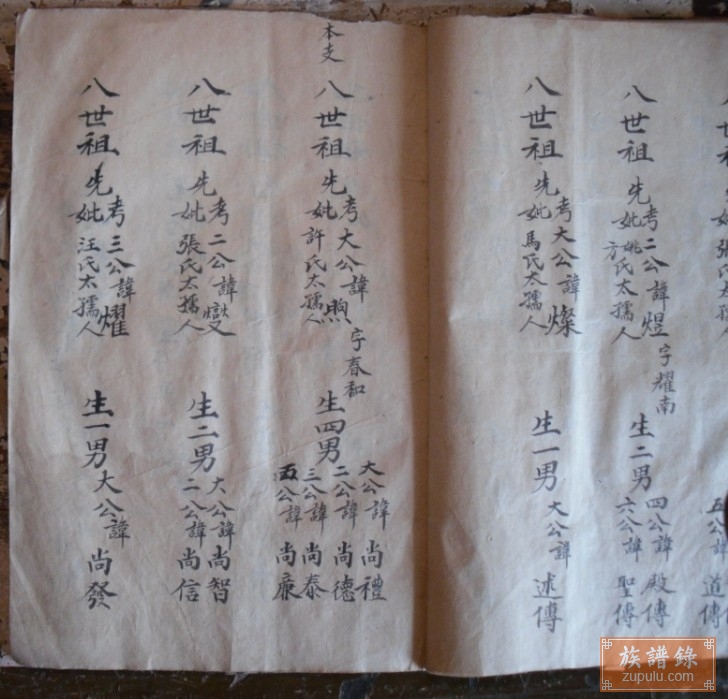 八世祖
先考二公諱煜 字耀南
妣姚方氏太孺人
生二男
四公諱 殿傳
六公諱 聖傳
八世祖
先考大公諱燦
妣馬氏太孺人
生一男
大公諱 述傳
本支
八世祖
先考大公諱煦 字春和
妣許氏太孺人
生四男
大公諱 尚禮
二公諱 尚德
三公諱 尚泰
五公諱 尚廉
八世祖
先考二公諱變
妣張氏太孺人
生二男
大公諱 尚智
二公諱 尚信
八世祖
先考三公諱耀
妣汪氏太孺人
生一男
大公諱 尚發
族譜錄
zupulu.com